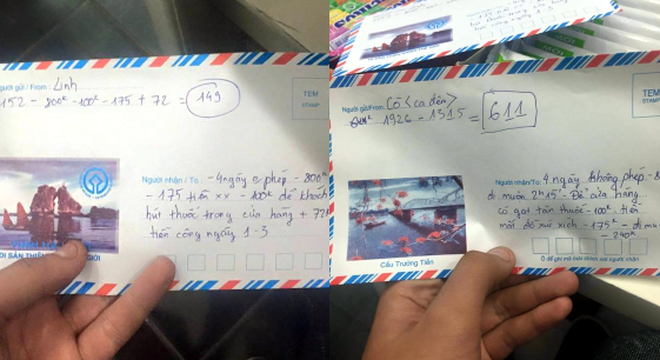 Người gửi/From: Linh
152 - 800k - 100k - 175 + 72 = 149
TEM
STAMP
Người nhận/To: - 4 ngày phép - 800k
- 175 tiền xx - 100k để khách
hút thuốc trong cửa hàng + 72k
tiền công ngày 1-3
DI SẢN THIÊN GIỚI
Người gửi/From: Cô <ca đêm>
1926 - 1315 = 611
TEM
STAMP
Người nhận/To: 4 ngày không phép - 8
đi muộn 2h15' Để cửa hàng
có gạt tàn thuốc - 100k tiền
mất đồ xúc xích - 175k - đi mu
- 240k
Cầu Trường Tiền